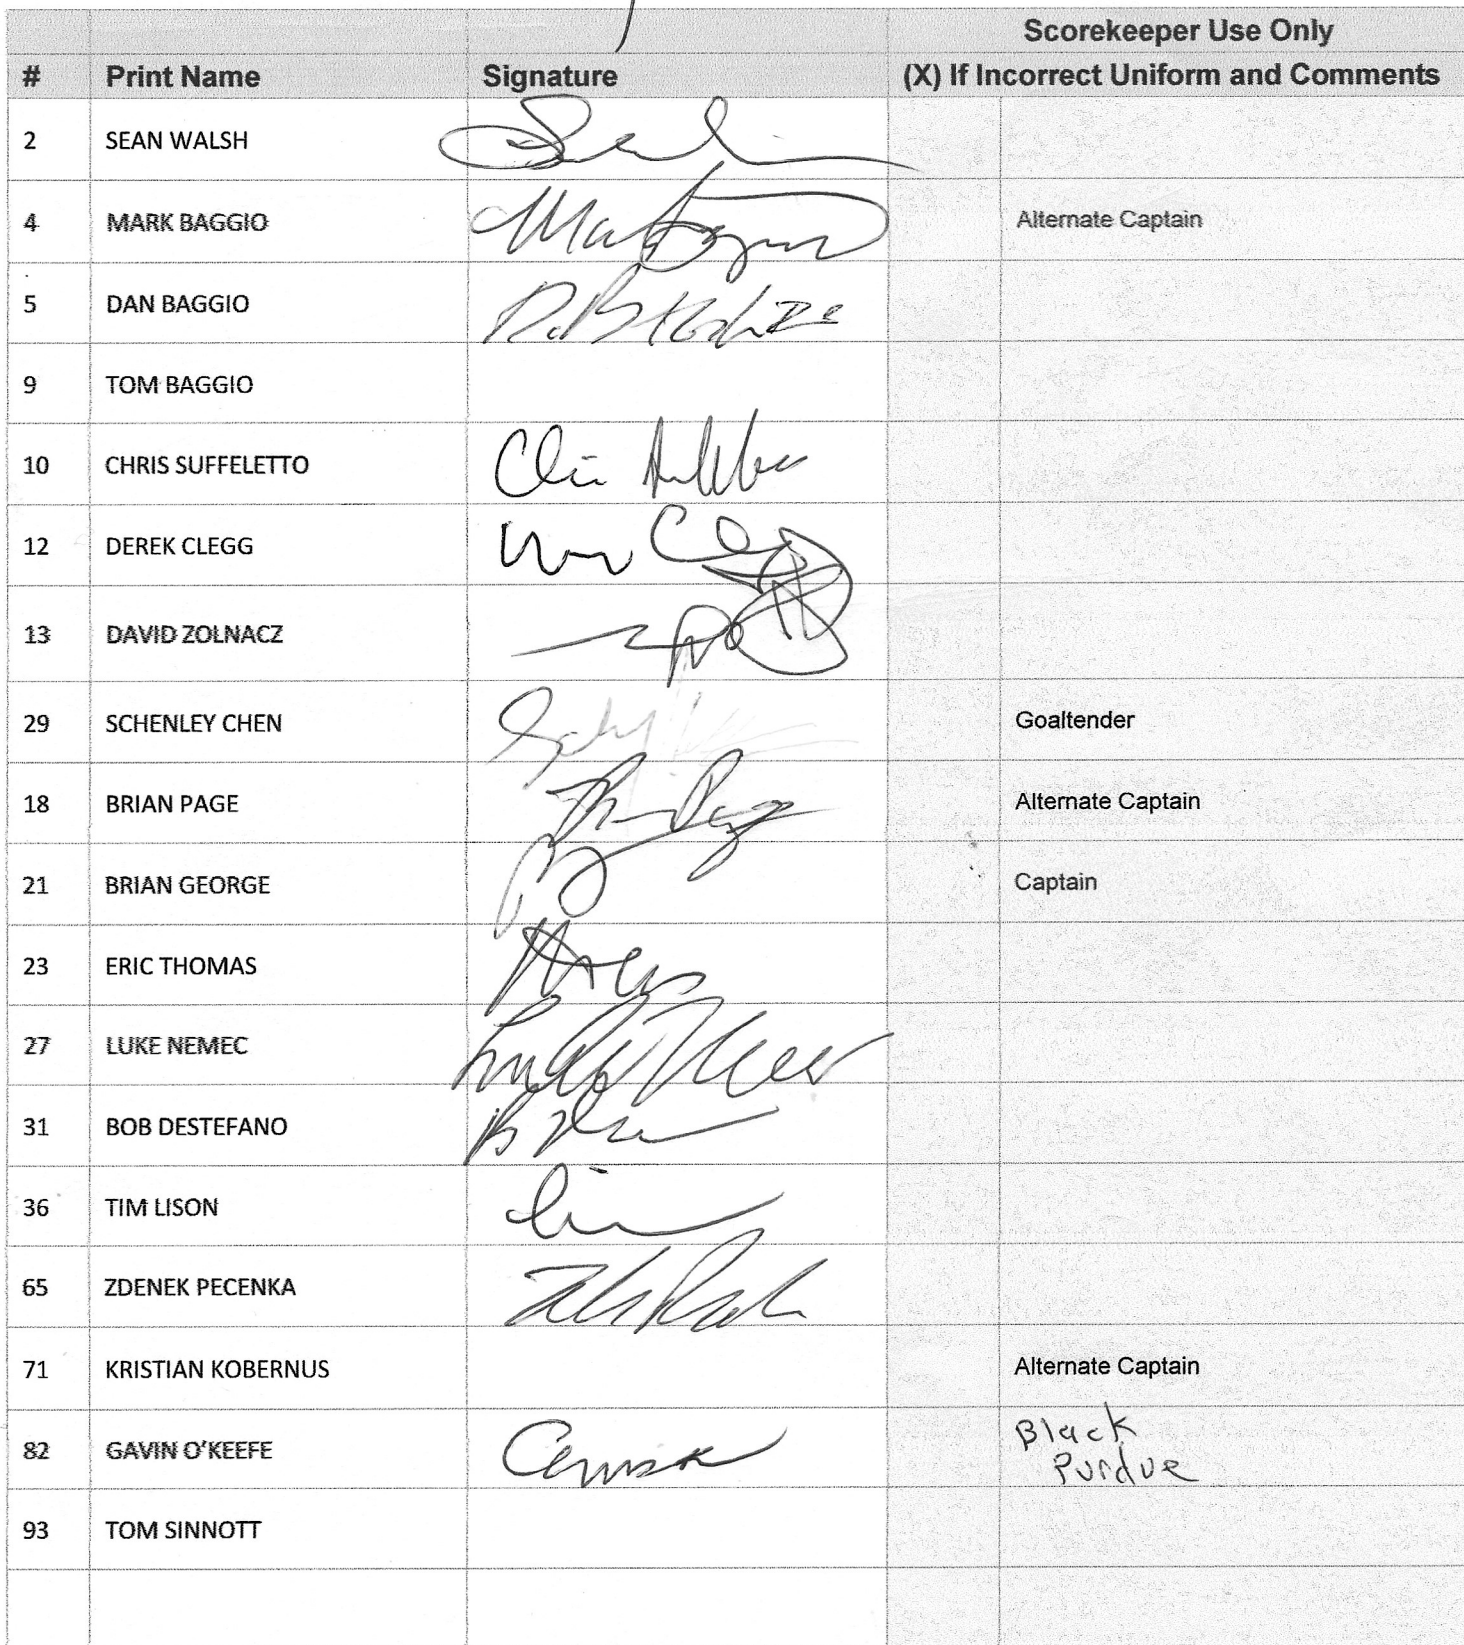 Scorekeeper Use Only
# Print Name Signature (X) If Incorrect Uniform and Comments
2 SEAN WALSH
4 MARK BAGGIO Alternate Captain
5 DAN BAGGIO
9 TOM BAGGIO
10 CHRIS SUFFELETTO
12 DEREK CLEGG
13 DAVID ZOLNACZ
29 SCHENLEY CHEN Goaltender
18 BRIAN PAGE Alternate Captain
21 BRIAN GEORGE Captain
23 ERIC THOMAS
27 LUKE NEMEC
31 BOB DESTEFANO
36 TIM LISON
65 ZDENEK PECENKA
71 KRISTIAN KOBERNUS Alternate Captain
82 GAVIN O'KEEFE Black
Purdue
93 TOM SINNOTT